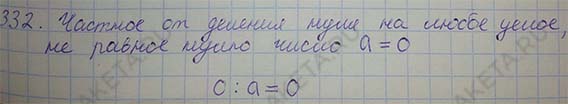 332. Частное от деления нуля на любое целое,
не равное нулю число a = 0
0 : a = 0